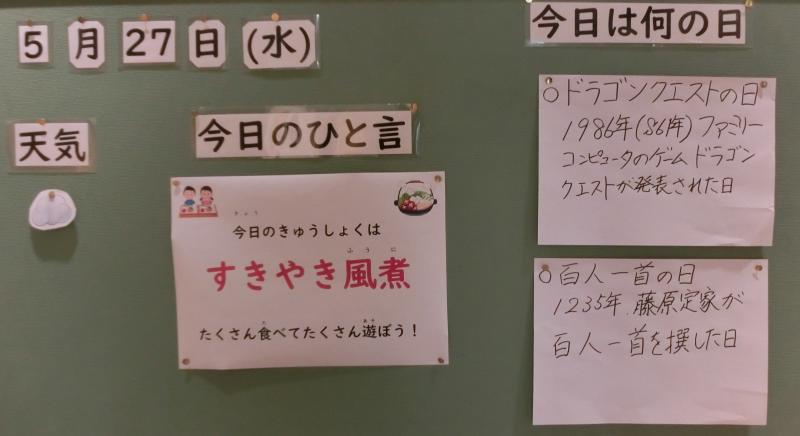 5月27日(水)
天気
今日のひと言
きょう
今日のきゅうしょくは
ふうに
すきやき風煮
た あそ
たくさん食べてたくさん遊ぼう！
今日は何の日
○ドラゴンクエストの日
1986年(S61年)ファミリー
コンピュータのゲームドラゴン
クエストが発表された日
○百人一首の日
1235年.藤原定家が
百人一首を撰した日